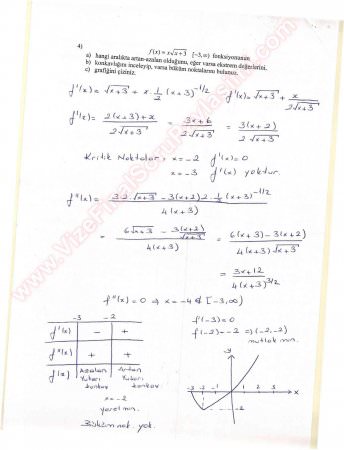 4)
f(x) = x√x+3 [-3,∞) fonksiyonunun
a) hangi aralıkta artan-azalan olduğunu, eğer varsa ekstrem değerlerini.
b) konkavlığını inceleyip, varsa büküm noktalarını bulunuz.
c) grafiğini çiziniz.
f'(x) = √x+3 + x. 1/2 (x+3)^-1/2 f'(x) = √x+3 + x/2√x+3
f'(x) = 2(x+3)+x / 2√x+3 = 3x+6 / 2√x+3 = 3(x+2) / 2√x+3
Kritik Noktalar: x=-2 f'(x)=0
x=-3 f'(x) yoktur.
f''(x) = 3.2.√x+3 - 3(x+2)2.1/2(x+3)^-1/2 / 4(x+3)
= 6√x+3 - 3(x+2)/√x+3 / 4(x+3) = 6(x+3)-3(x+2) / 4(x+3)√x+3
= 3x+12 / 4(x+3)^3/2
f''(x)=0 ⇒ x=-4 ∉ [-3,∞)
-3 -2
f'(x) - +
f''(x) + +
f(x) Azalan Artan
Yukarı Yukarı
konkav konkav
x=-2
yerel min.
Büküm nok. yok.
f(-3)=0
f(-2)=-2 ⇒ (-2,-2)
mutlak min.
y
-3 -2 -1 1 2 3 x
-2
www.VizeFinalSoruPaylasimi.com